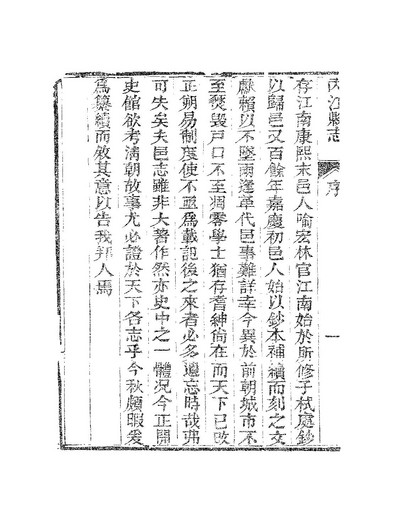 內江縣志
序
一
存江南康熙末邑人喻宏林官江南始於所修子栻處鈔
以歸邑又百餘年嘉慶初邑人始以鈔本補續而刻之文
獻賴以不墜兩逢革代邑事難詳幸今異於前朝城市不
至燹毀戶口不至凋零學士猶存耆紳尚在而天下已改
正朔易制度使不亟爲載記後之來者必多遺忘時哉弗
可失矣夫邑志雖非大著作然亦史中之一體況今正開
史館欲考淸朝故事尤必證於天下各志乎今秋頗暇爰
爲纂續而敘其意以告我邦人焉